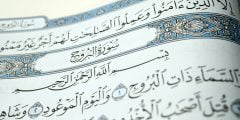 إِلَّا الَّذِينَ ءَامَنُوا وَعَمِلُوا الصَّٰلِحَٰتِ لَهُمْ أَجْرٌ غَيْرُ مَمْنُونٍ
سُورَةُ الْبُرُوجِ
بِسْمِ اللَّهِ الرَّحْمَٰنِ الرَّحِيمِ
وَالسَّمَاءِ ذَاتِ الْبُرُوجِ ١ وَالْيَوْمِ الْمَوْعُودِ ٢ وَشَاهِدٍ
قُتِلَ أَصْحَٰبُ الْأُخْدُودِ